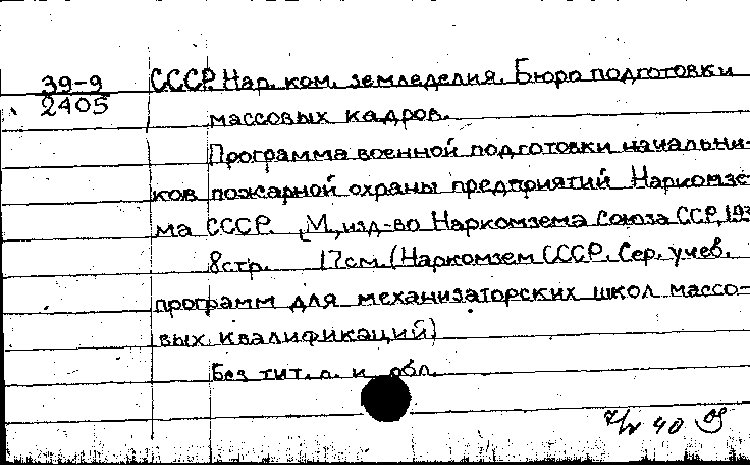 39-9
2405
СССР. Нар. ком. земледелия. Бюро подготовки
массовых кадров.
Программа военной подготовки начальни-
ков пожарной охраны предприятий Наркомзе-
ма СССР. [М, изд-во Наркомзема Союза ССР, 193
8 стр. 17 см. (Наркомзем СССР. Сер. учеб.
программ для механизаторских школ массо-
вых квалификаций)
Без тит. л. и обл.
40